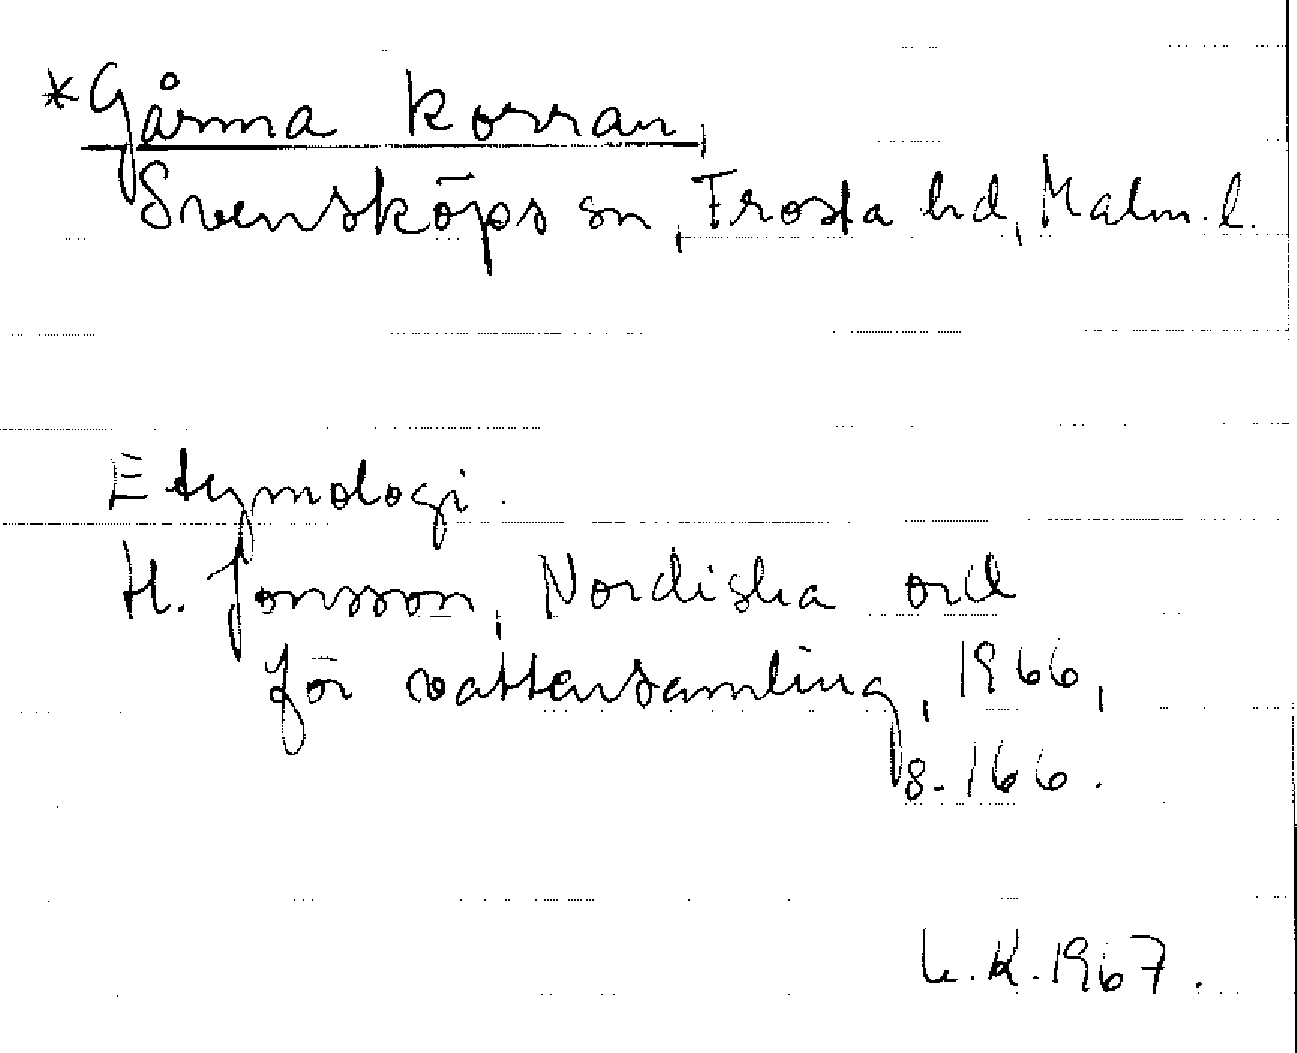 *Gårma korran,
Svensköps sn, Frosta hd, Malm. l.
Etymologi.
H. Jonsson, Nordiska ord
för vattensamling, 1966,
s. 166.
L.K. 1967.